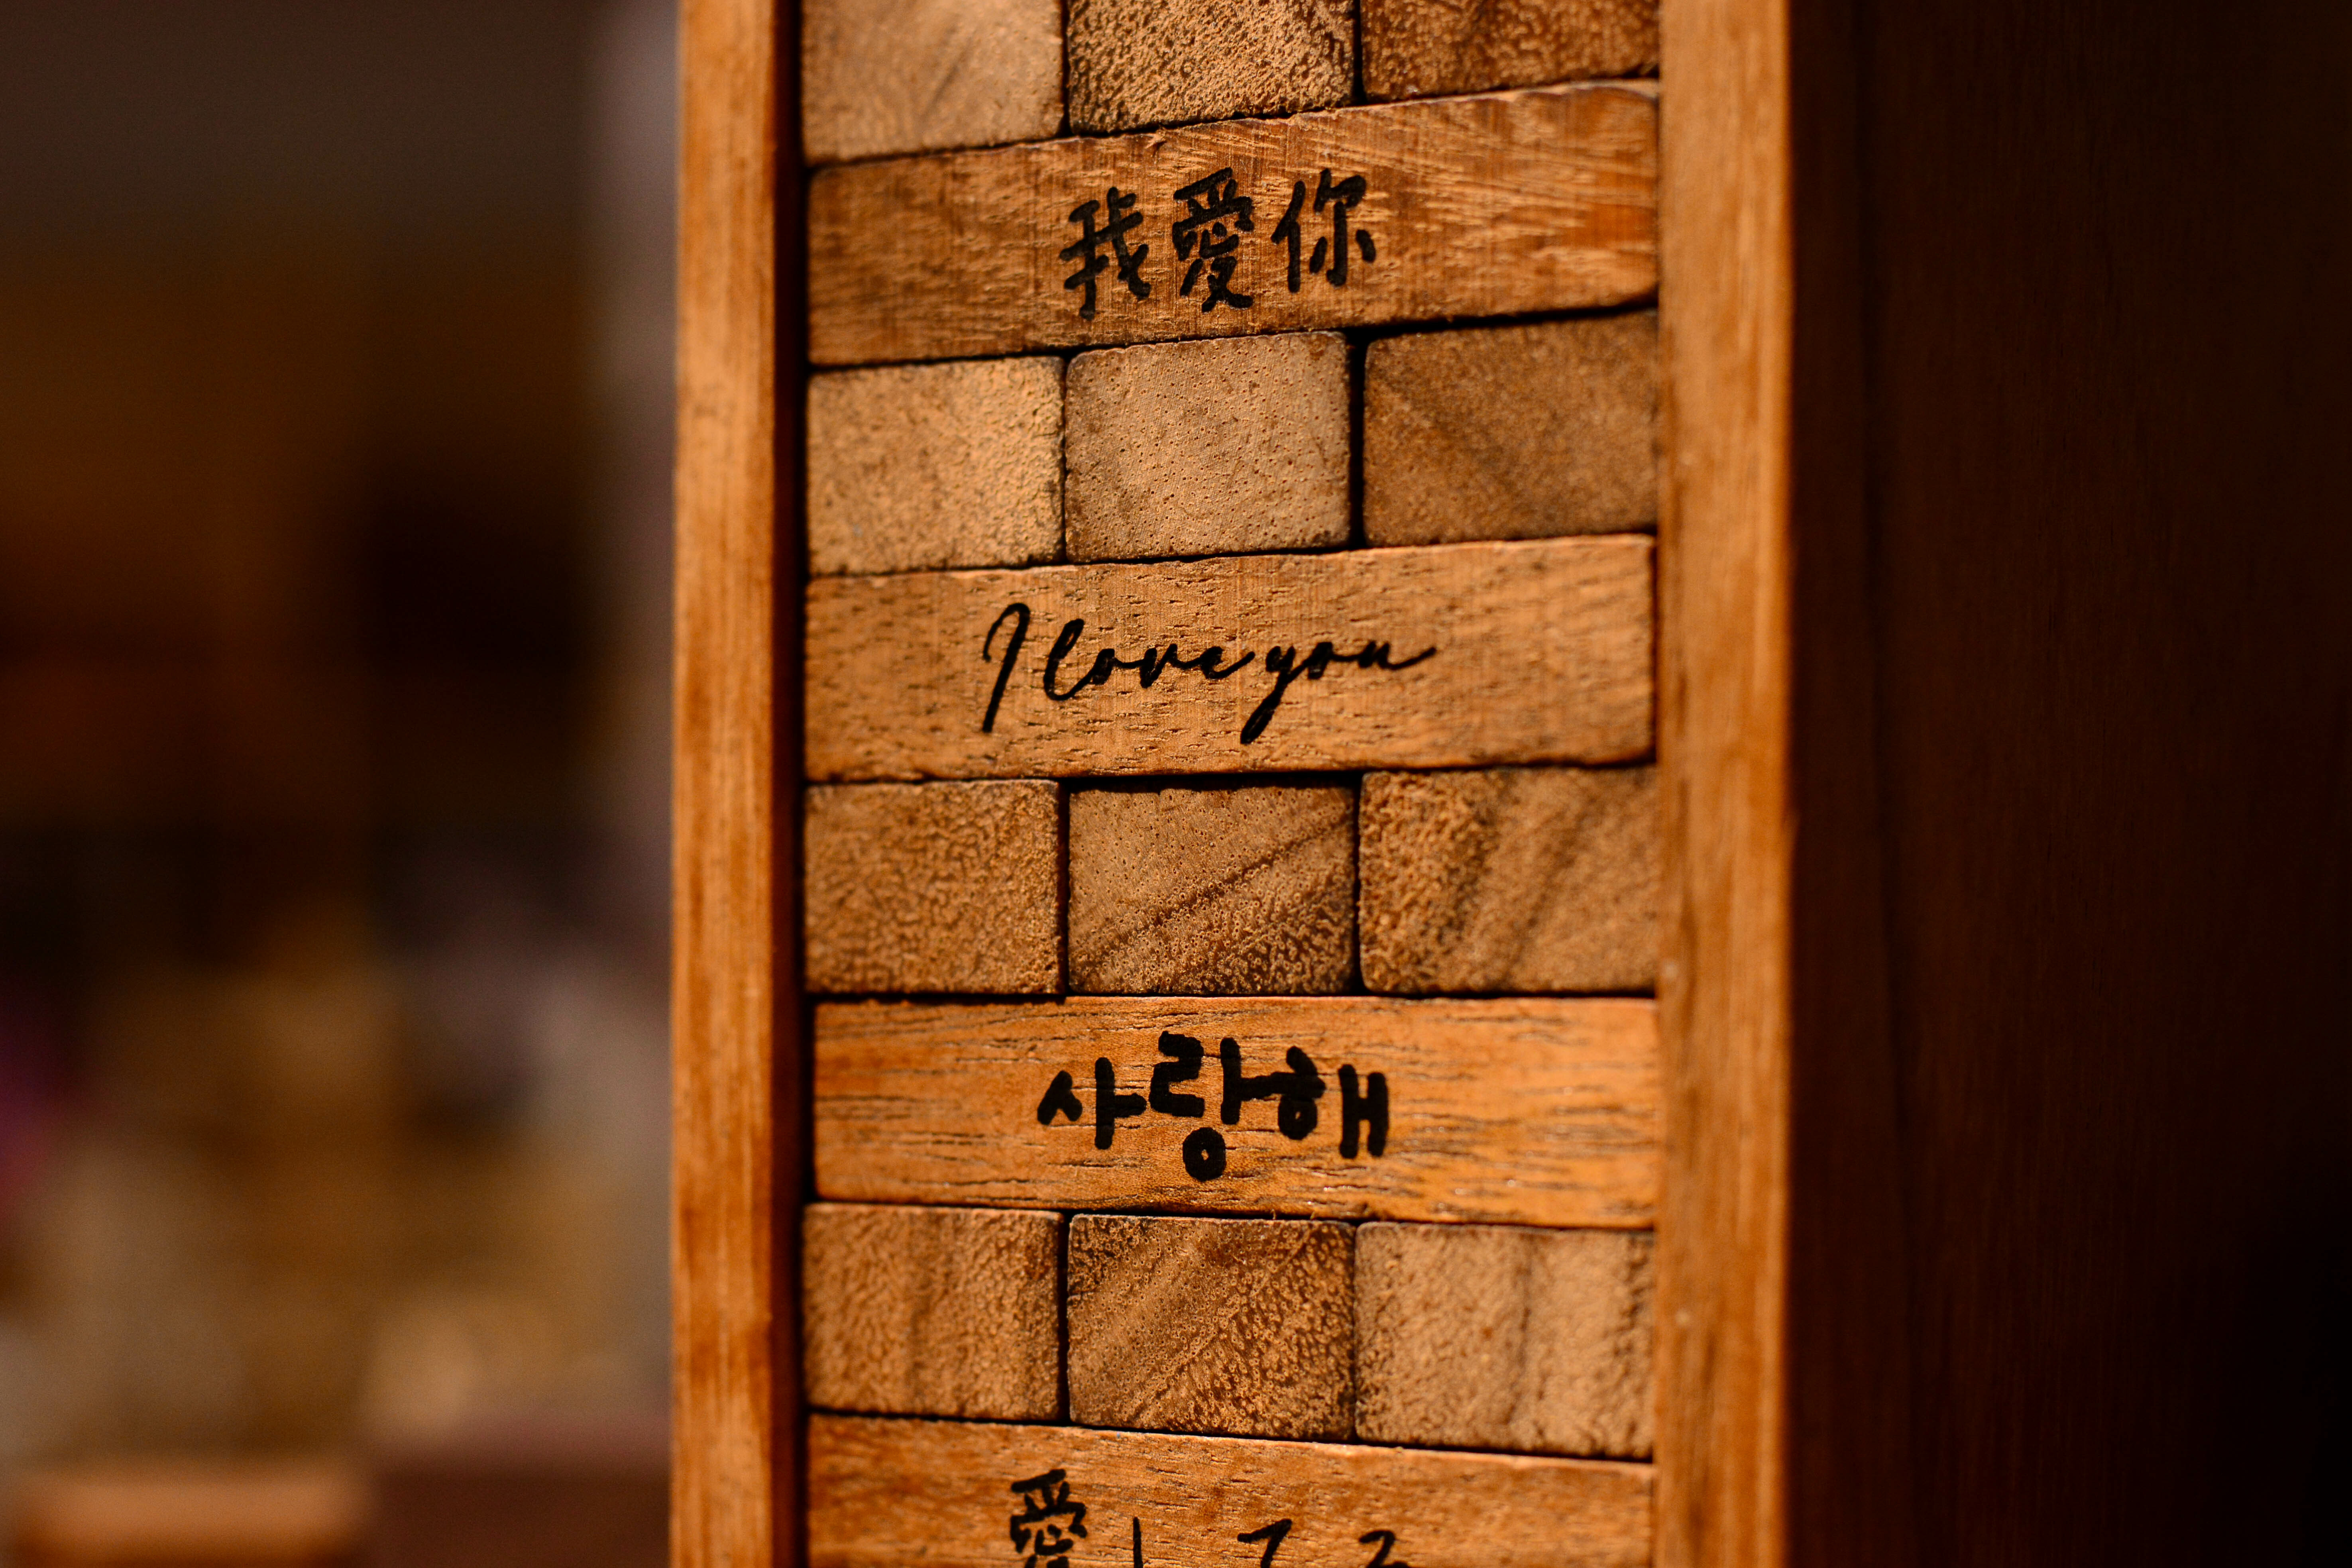 我愛你
I love you
사랑해
愛してる